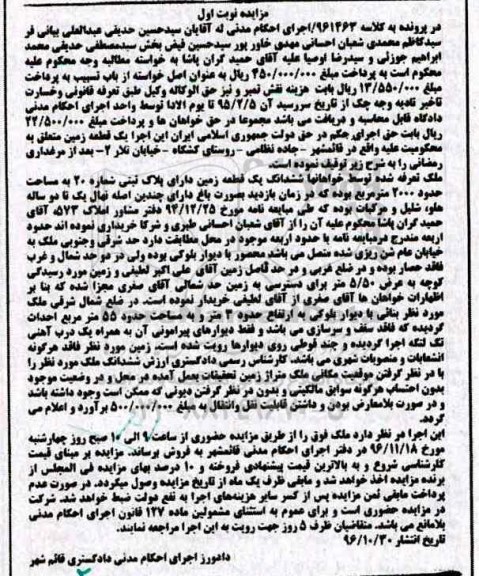 مزایده نوبت اول
در پرونده به کلاسه ۹۶۱۴۶۳/اجرای احکام مدنی له آقایان سیدحسین حدیفی عبدالعلی بیانی فر
سیدکاظم محمدی شعبان احسانی مهدی خاور پور سیدحسین فیض بخش سیدمصطفی حدیفی محمد
ابراهیم جوزئی و سیدرضا اوصیا علیه آقای حمید گران پاشا به خواسته مطالبه وجه محکوم علیه
محکوم است به پرداخت مبلغ ۴۵۰/۰۰۰/۰۰۰ ریال به عنوان اصل خواسته از باب تسبیب به پرداخت
مبلغ ۱۳/۵۵۰/۰۰۰ ریال بابت هزینه نقض تمبر و نیز حق الوکاله وکیل طبق تعرفه قانونی وخسارت
تاخیر تادیه وجه چک از تاریخ سررسید آن ۹۵/۲/۵ تا یوم الادا توسط واحد اجرای احکام مدنی
دادگاه قابل محاسبه و دریافت می باشد مجموعا در حق خواهان ها و پرداخت مبلغ ۲۲/۵۰۰/۰۰۰
ریال بابت حق اجرای حکم در حق دولت جمهوری اسلامی ایران این اجرا یک قطعه زمین متعلق به
محکومیت علیه واقع در قائمشهر -جاده نظامی -روستای کشگاه -خیابان تلار ۲- بعد از مرغداری
رمضانی را به شرح زیر توقیف نموده است.
ملک تعرفه شده توسط خواهانها ششدانگ یک قطعه زمین دارای پلاک ثبتی شماره ۲۰ به مساحت
حدود ۲۰۰۰ مترمربع بوده که در زمان بازدید بصورت باغ دارای چندین اصله نهال یک تا دو ساله
هلو، شلیل و مرکبات بوده که طی مبایعه نامه مورخ ۹۴/۱۲/۲۵ دفتر مشاور املاک ۵۷۳، آقای
حمید گران پاشا محکوم علیه آن را از آقای شعبان احسانی طبری و شرکا خریداری نموده اند حدود
اربعه مندرج درمبایعه نامه با حدود اربعه موجود در محل مطابقت دارد حد شرقی وجنوبی ملک به
خیابان عام شن ریزی شده متصل می باشد محصور با دیوار بلوکی بوده ولی در دو حد شمال و غرب
فاقد حصار بوده و در ضلع غربی و در حد فاصل زمین آقای علی اکبر لطیفی و زمین مورد رسیدگی
کوچه به عرض ۵/۵۰ متر برای دسترسی به زمین حد شمالی آقای صفری مجزا شده که بنا بر
اظهارات خواهان ها آقای صفری از آقای لطیفی خریدار نموده است. در ضلع شمال شرقی ملک
مورد نظر بنائی با دیوار بلوکی به ارتفاع حدود ۳ متر و به مساحت حدود ۵۵ متر مربع احداث
گردیده که فاقد سقف و سرسازی می باشد و فقط دیوارهای پیرامونی آن به همراه یک درب آهنی
تک لنگه اجرا گردیده و چند قوطی روی دیوارها رویت شده است. زمین مورد نظر فاقد هرگونه
انشعابات و منصوبات شهری می باشد. کارشناس رسمی دادگستری ارزش ششدانگ ملک مورد نظر را
با در نظر گرفتن موقعیت مکانی ملک متراژ زمین تحقیقات بعمل آمده در محل و در وضعیت موجود
بدون احتساب هرگونه سوابق مالکیتی و بدون در نظر گرفتن دیونی که ممکن است وجود داشته باشد
و در صورت بلامعارض بودن و داشتن قابلیت نقل وانتقال به مبلغ ۵۰۰/۰۰۰/۰۰۰ برآورد و اعلام می
گردد.
این اجرا در نظر دارد ملک فوق را از طریق مزایده حضوری از ساعت ۹ الی ۱۰ صبح روز چهارشنبه
مورخ ۹۶/۱۱/۱۸ در دفتر اجرای احکام مدنی قائمشهر به فروش برساند. مزایده بر مبنای قیمت
کارشناسی شروع و به بالاترین قیمت پیشنهادی فروخته و ۱۰ درصد بهای مزایده فی المجلس از
برنده مزایده اخذ خواهد شد و مابقی ظرف یک ماه از تاریخ مزایده وصول میگردد. در صورت عدم
پرداخت مابقی ثمن مزایده پس از کسر سایر هزینه‌های اجرا به نفع دولت ضبط خواهد شد. شرکت
در مزایده حضوری است و برای عموم به استثنای مشمولین ماده ۱۲۷ قانون اجرای احکام مدنی
بلامانع می باشد. متقاضیان ظرف ۵ روز جهت رویت به این اجرا مراجعه نمایند.
تاریخ انتشار ۹۶/۱۰/۳۰
دادورز اجرای احکام مدنی دادگستری قائم شهر